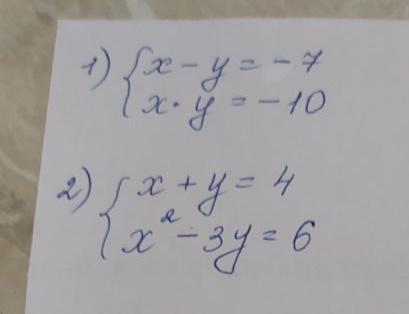 1) { x - y = - 7
x · y = - 10
2) { x + y = 4
x² - 3y = 6